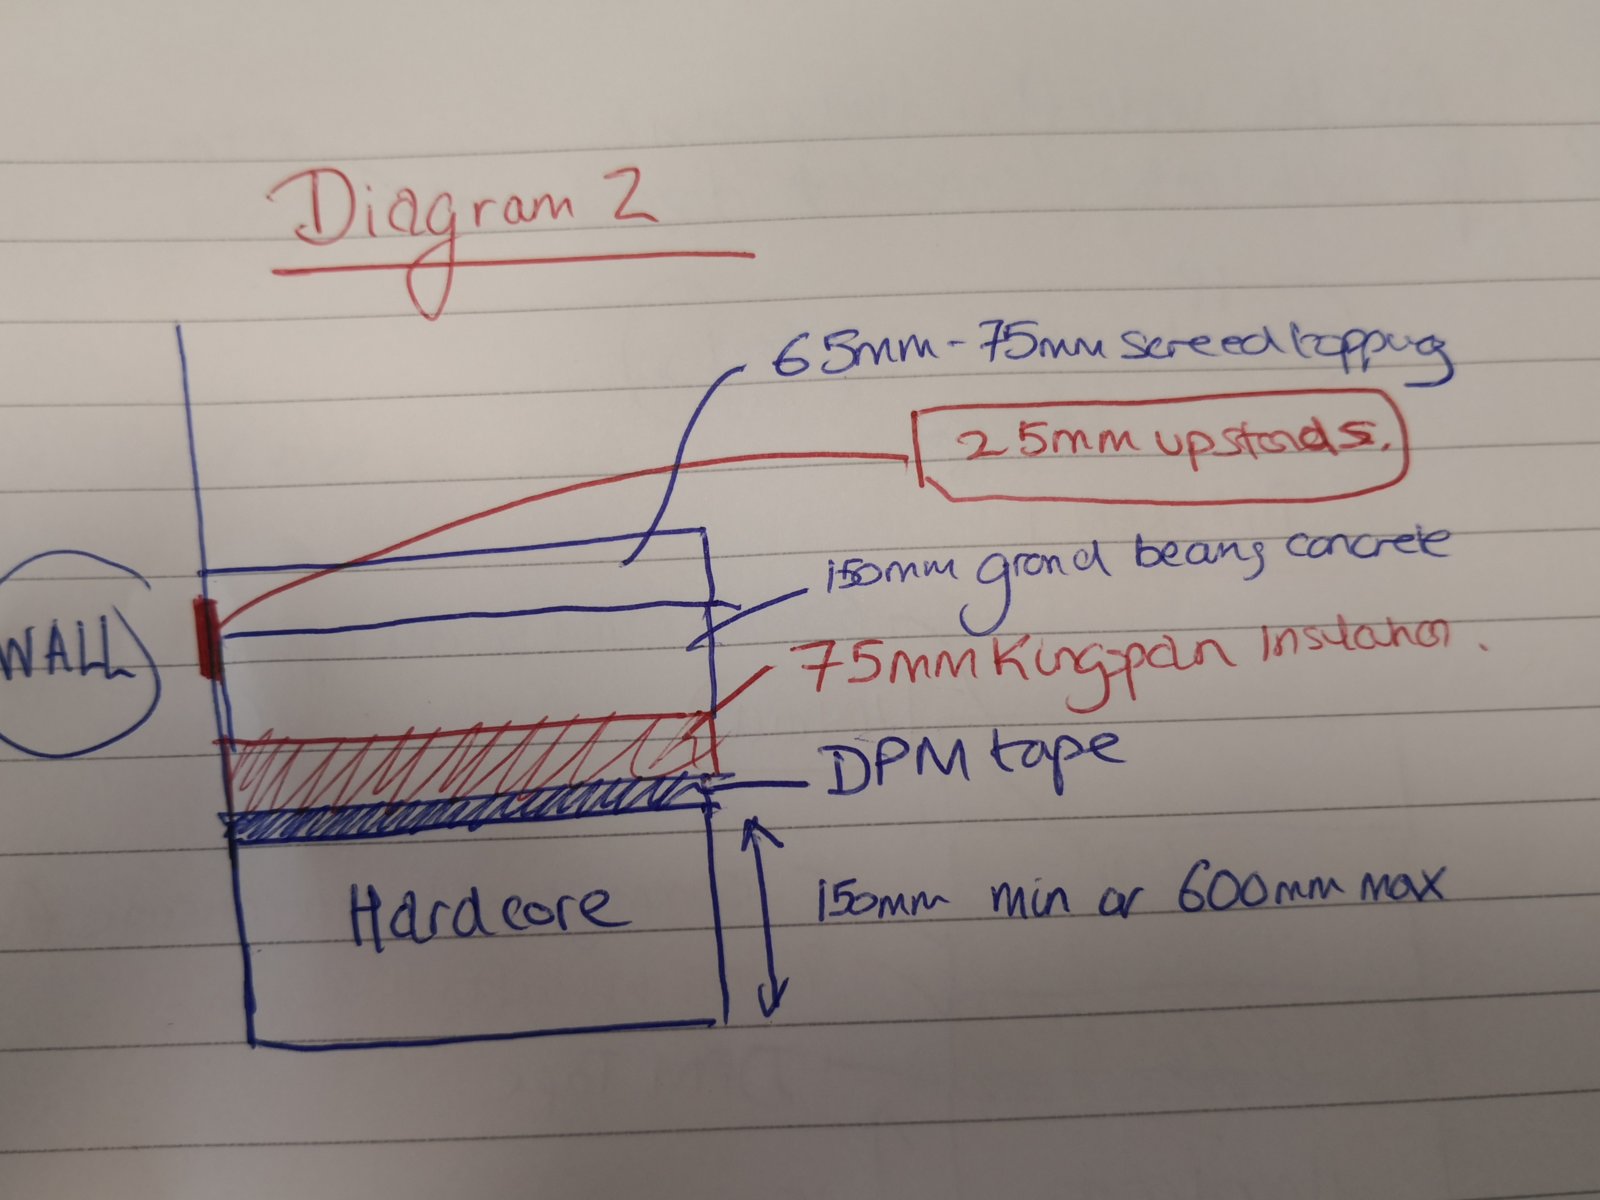 Diagram 2
65mm-75mm screed topping
25mm upstands.
150mm grond beang concrete
WALL
75mm Kingspan Insulation.
DPM tape
Hardcore
150mm min or 600mm max